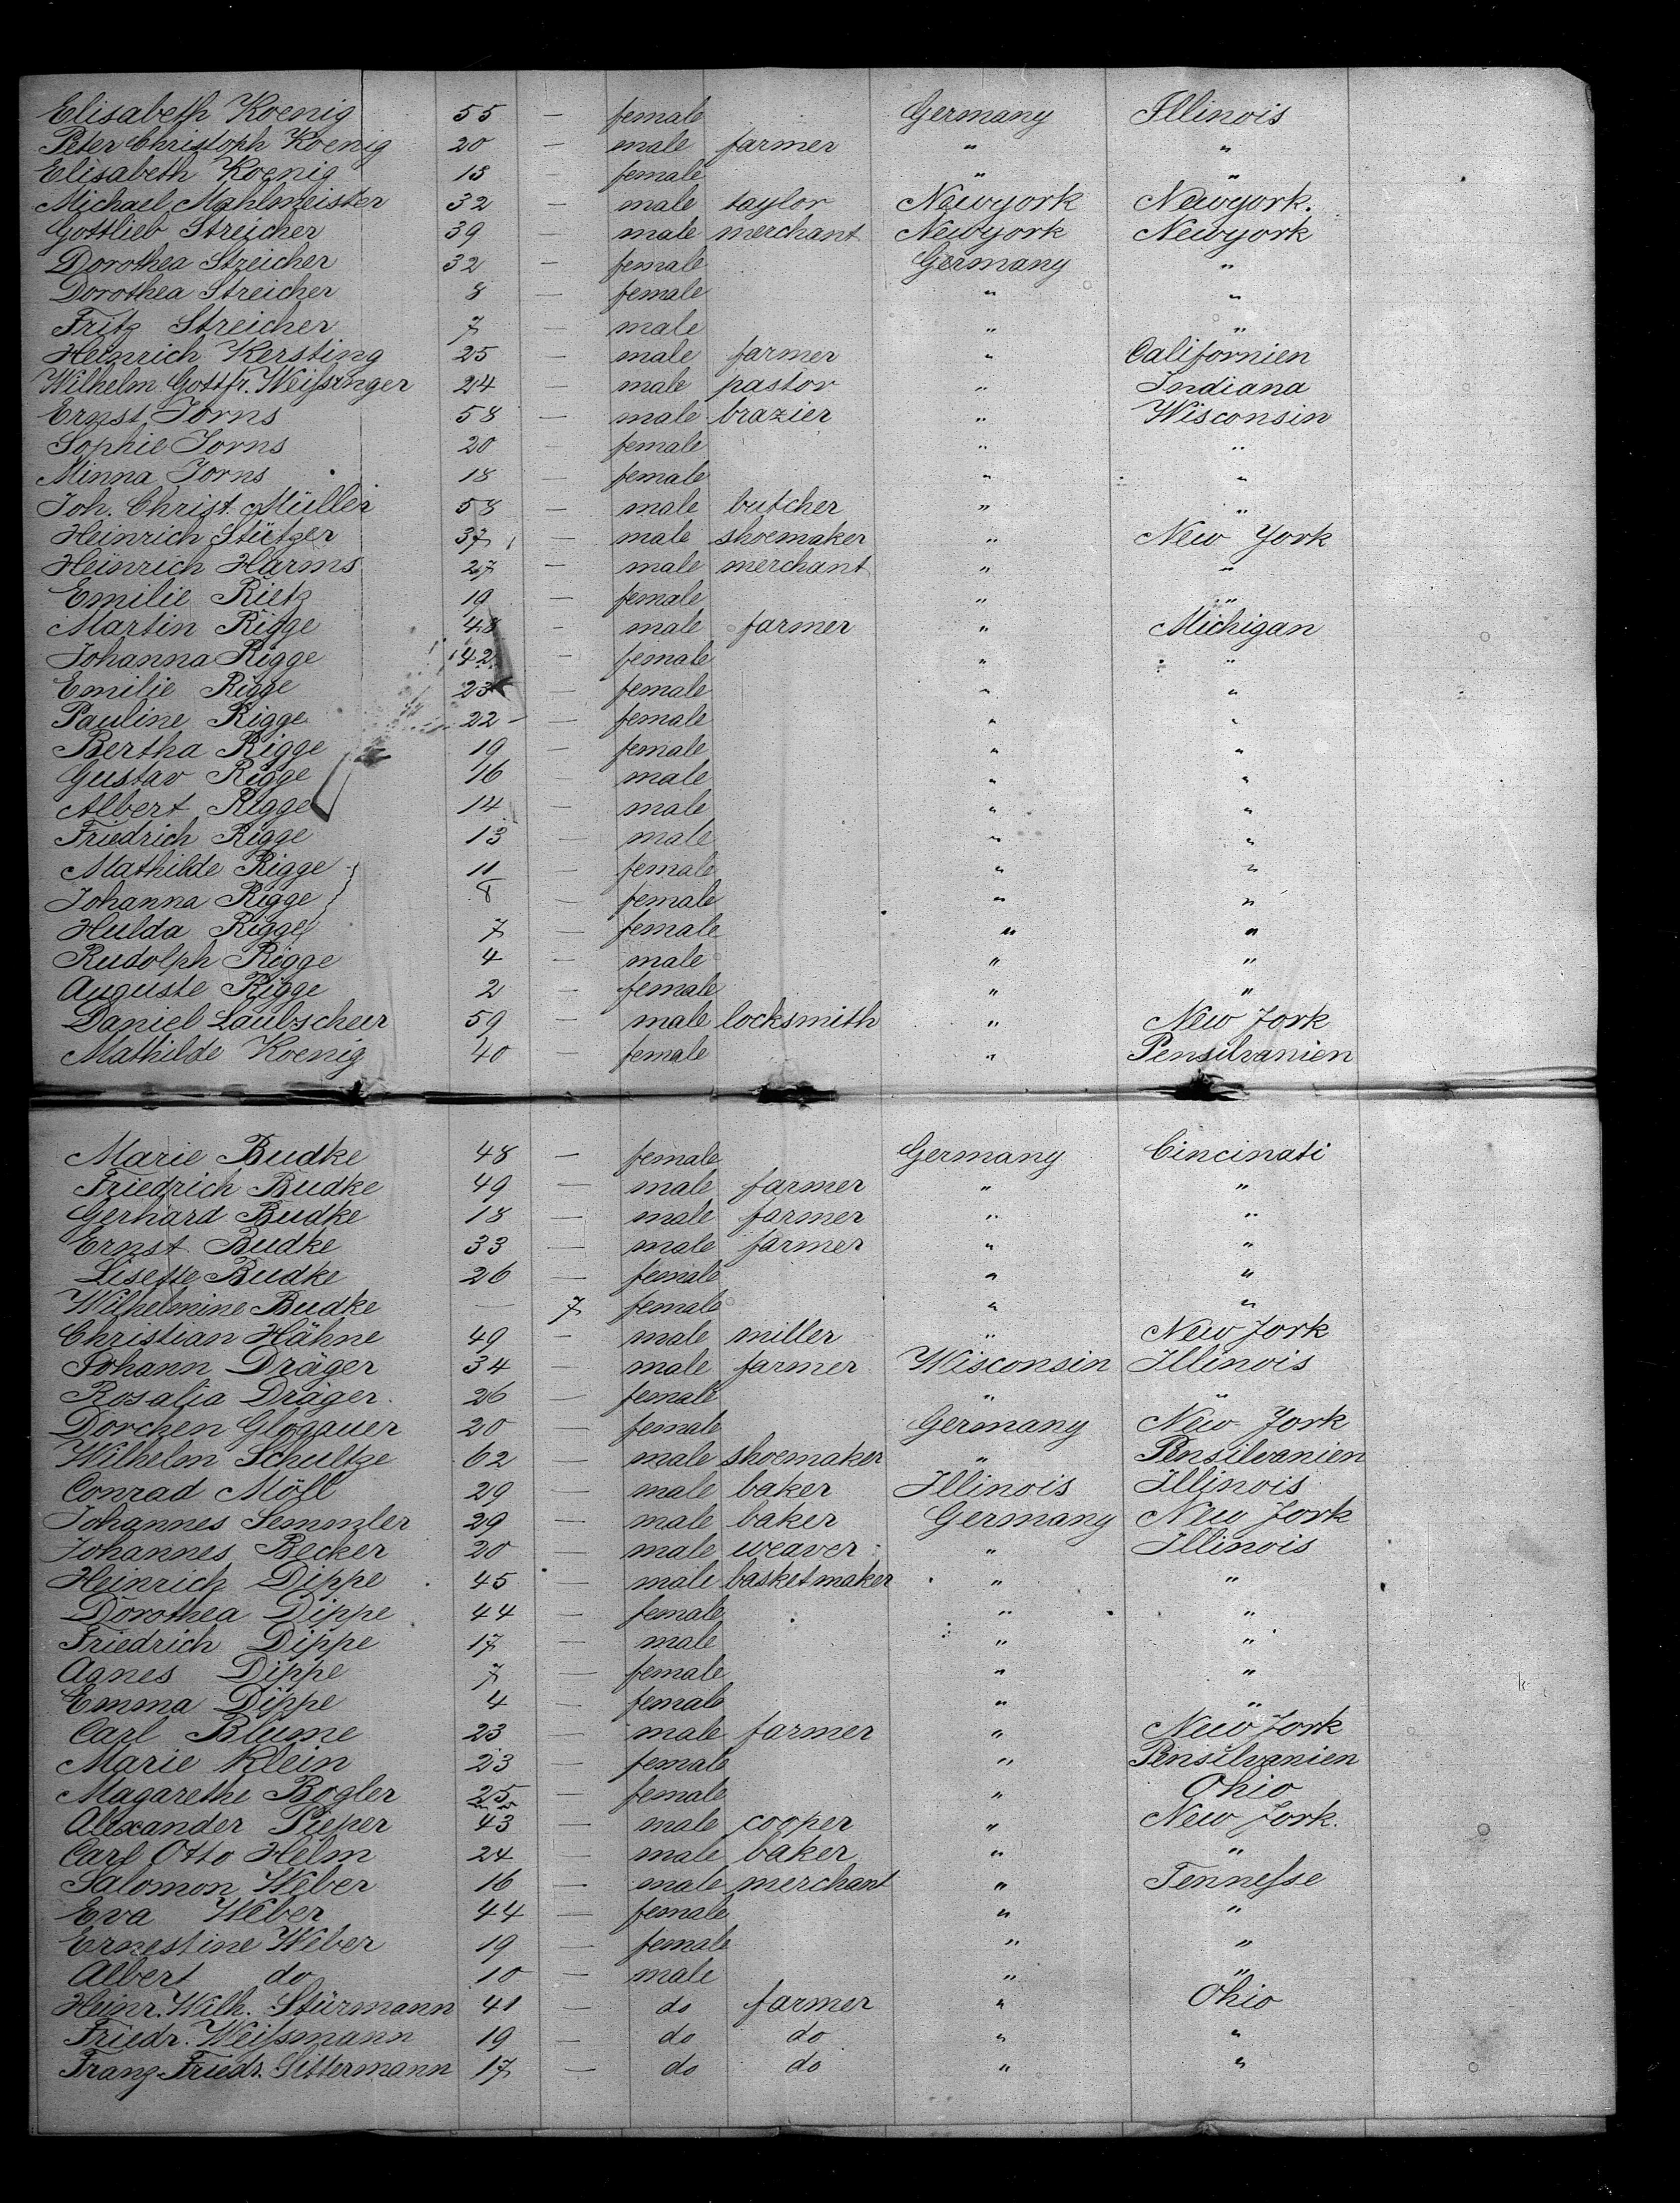 Elisabeth Koenig 55 — female Germany Illinois
Peter Christoph Koenig 20 — male farmer " "
Elisabeth Koenig 18 — female " "
Michael Mahlmeister 32 — male taylor Newyork Newyork.
Gottlieb Streicher 39 — male merchant Newyork Newyork
Dorothea Streicher 32 — female Germany "
Dorothea Streicher 8 — female " "
Fritz Streicher 7 — male " "
Heinrich Kersting 25 — male farmer " Californien
Wilhelm Gottfr. Weißinger 24 — male pastor " Indiana
Ernst Jorns 58 — male brazier " Wisconsin
Sophie Jorns 20 — female " "
Minna Jorns 18 — female " "
Joh. Christ. Müller 58 — male butcher " "
Heinrich Stützer 37 male shoemaker " New York
Heinrich Harms 27 — male merchant " "
Emilie Rietz 19 — female " "
Martin Rigge 48 — male farmer " Michigan
Johanna Rigge 42 — female " "
Emilie Rigge 23 — female " "
Pauline Rigge 22 — female " "
Bertha Rigge 19 — female " "
Gustav Rigge 16 — male " "
Albert Rigge 14 — male " "
Friedrich Rigge 13 — male " "
Mathilde Rigge 11 — female " "
Johanna Rigge 8 — female " "
Hulda Rigge 7 — female " "
Rudolph Rigge 4 — male " "
Auguste Rigge 2 — female " "
Daniel Laubscheer 59 — male locksmith " New York
Mathilde Koenig 40 — female " Pensilvanien
Marie Budke 48 — female Germany Cincinati
Friedrich Budke 49 — male farmer " "
Gerhard Budke 18 — male farmer " "
Ernst Budke 33 — male farmer " "
Lisette Budke 26 — female " "
Wilhelmine Budke — 7 female " "
Christian Hähne 49 — male miller " New York
Johann Dräger 34 — male farmer Wisconsin Illinois
Rosalia Dräger 26 — female " "
Dorchen Glogauer 20 — female Germany New York
Wilhelm Schultze 62 — male shoemaker " Pensilvanien
Conrad Möll 29 — male baker Illinois Illinois
Johannes Semmler 29 — male baker Germany New York
Johannes Becker 20 — male weaver " Illinois
Heinrich Dippe 45 — male basketmaker " "
Dorothea Dippe 44 — female " "
Friedrich Dippe 17 — male " "
Agnes Dippe 7 — female " "
Emma Dippe 4 — female " "
Carl Blume 23 — male farmer " New York
Marie Klein 23 — female " Pensilvanien
Magarethe Bogler 25 — female " Ohio
Alexander Pieper 43 — male cooper " New York.
Carl Otto Helm 24 — male baker " "
Salomon Weber 16 — male merchant " Tenneſse
Eva Weber 44 — female " "
Ernestine Weber 19 — female " "
Albert do 10 — male " "
Heinr. Wilh. Stürmann 41 — do farmer " Ohio
Friedr. Weißmann 19 — do do " "
Franz Friedr. Sittermann 17 — do do " "